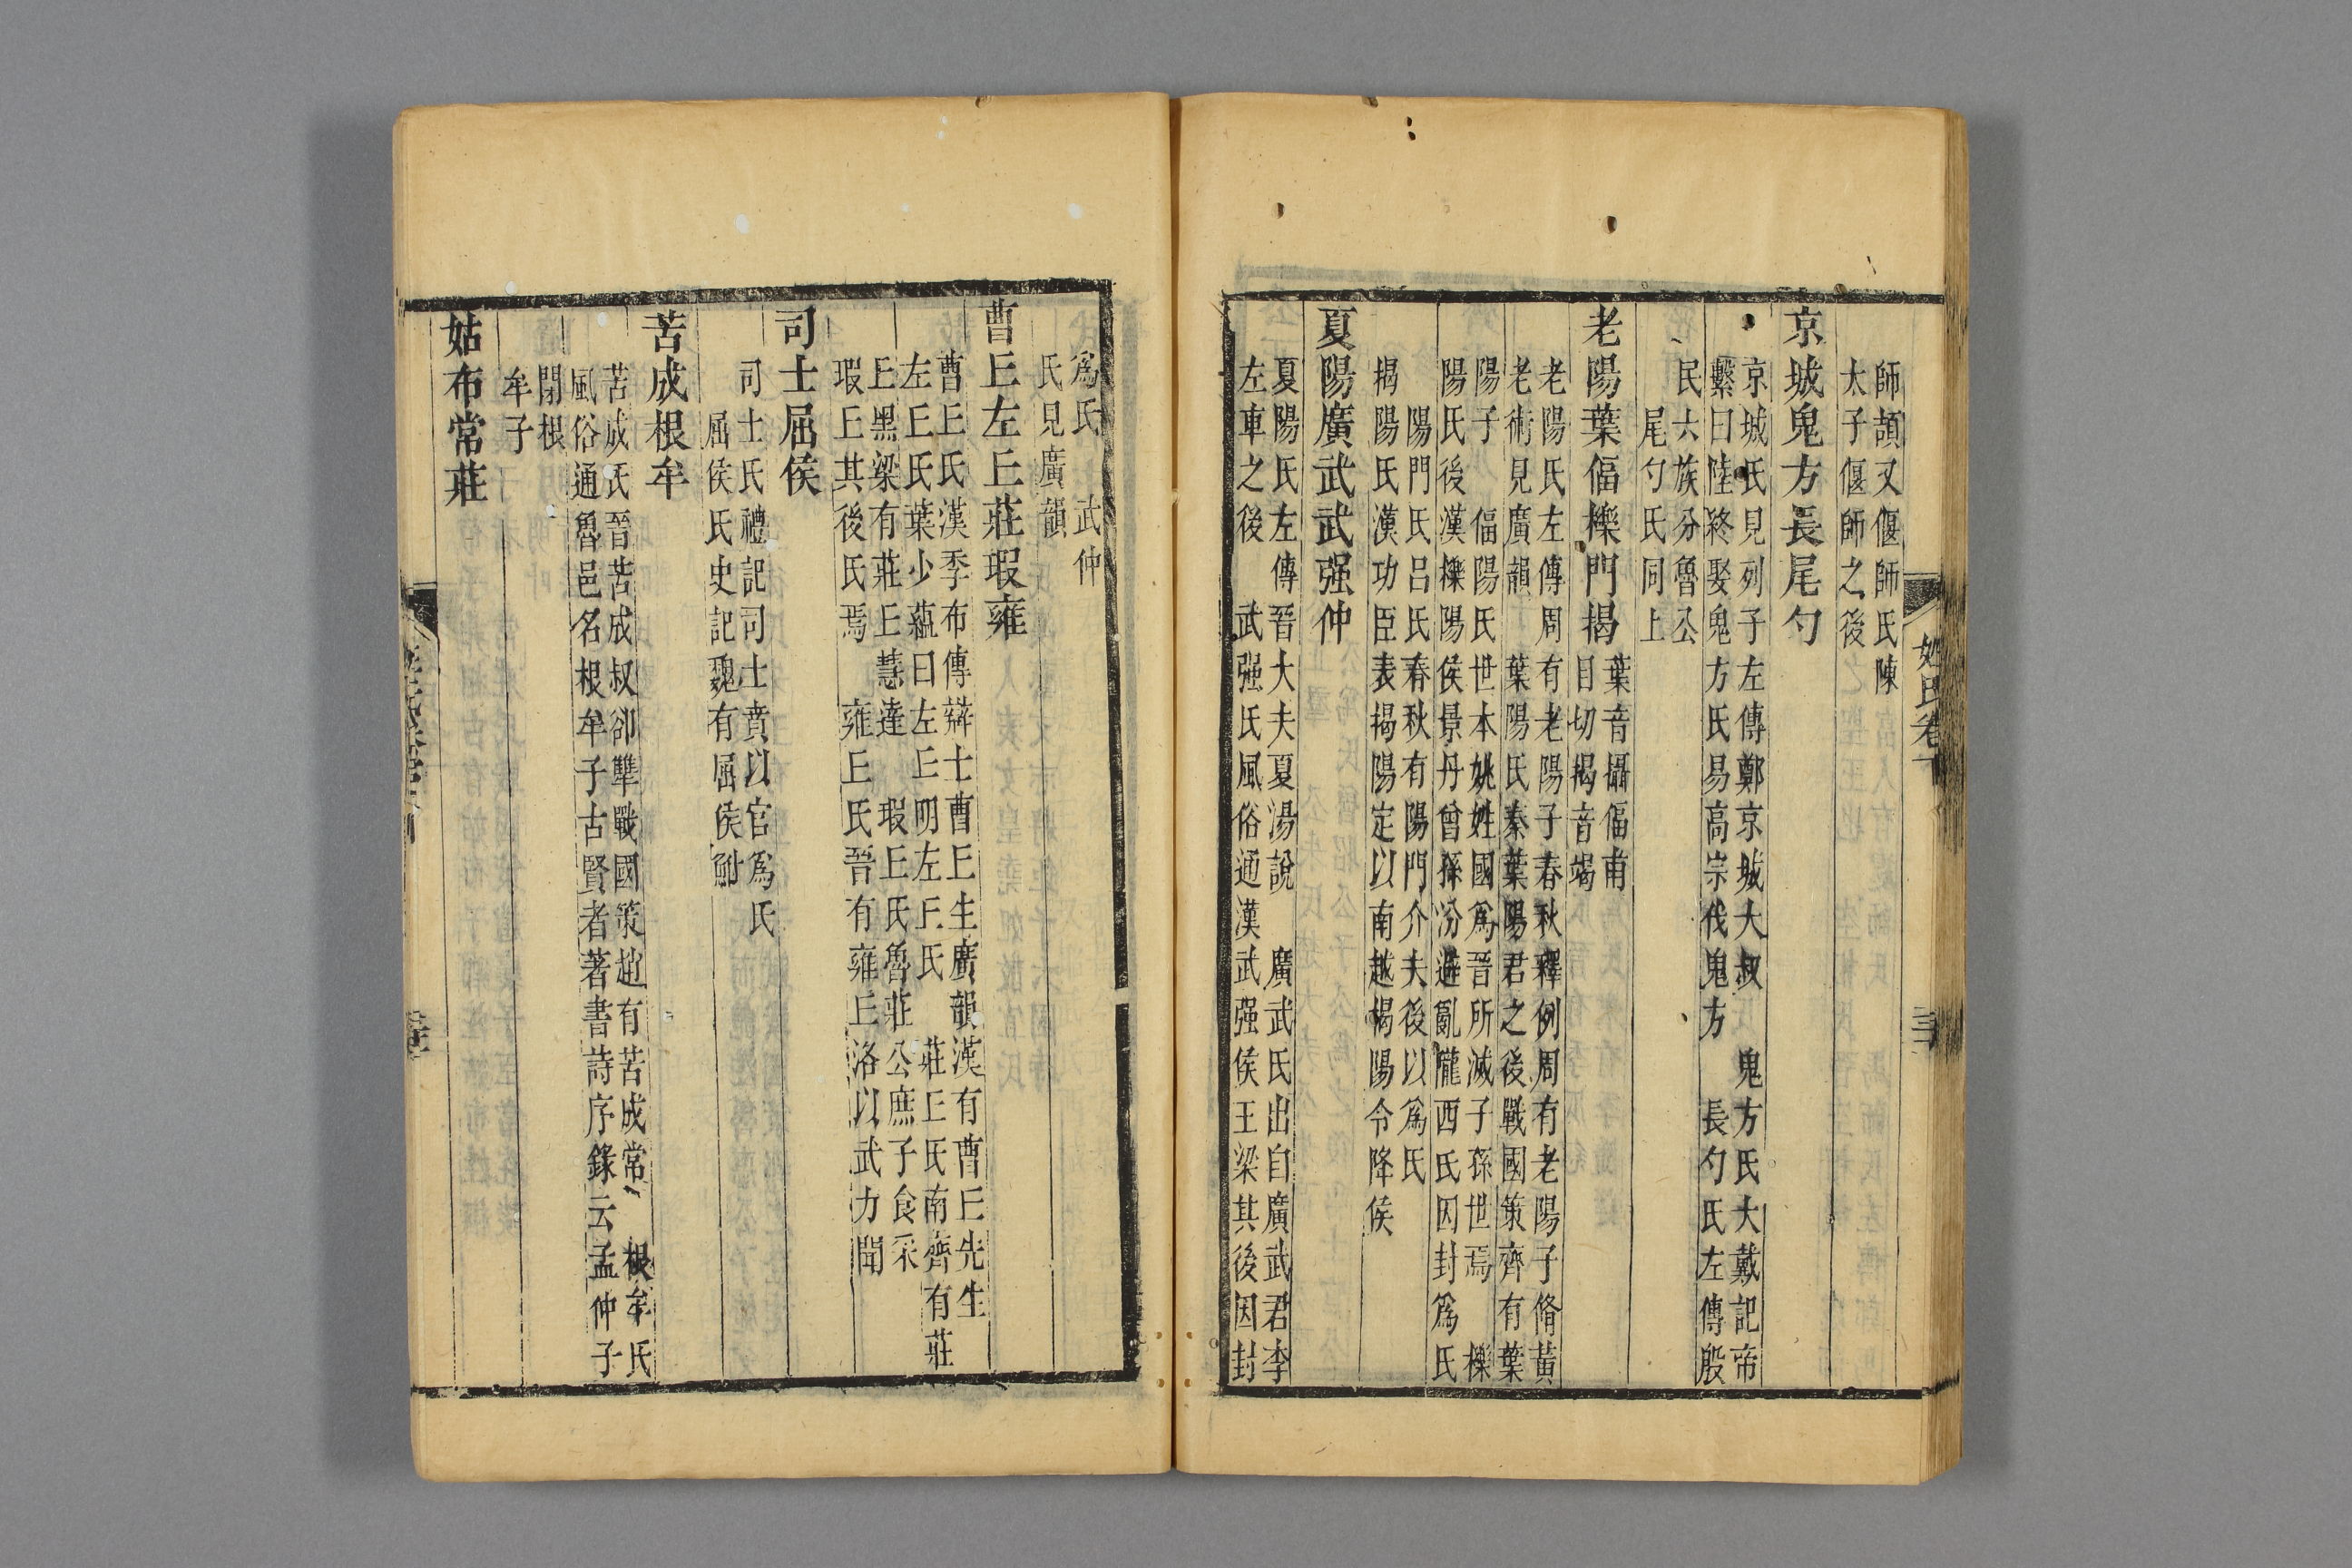 師頡又偃師氏陳
太子偃師之後
京城鬼方長尾勺
京城氏見列子左傳鄭京城大叔　鬼方氏大戴記帝
繫曰陸終娶鬼方氏易高宗伐鬼方　長勺氏左傳殷
民六族分魯公
尾勺氏同上
老陽葉偪櫟門揭
葉音攝偪南
目切揭音竭
老陽氏左傳周有老陽子春秋釋例周有老陽子脩黃
老術見廣韻　葉陽氏秦葉陽君之後戰國策齊有葉
陽子　偪陽氏世本姚姓國爲晉所滅子孫世焉　櫟
陽氏後漢櫟陽侯景丹曾孫汾避亂隴西氏因封爲氏
陽門氏呂氏春秋有陽門介夫後以爲氏
揭陽氏漢功臣表揭陽定以南越揭陽令降侯
夏陽廣武武强仲
夏陽氏左傳晉大夫夏湯說　廣武氏出自廣武君李
左車之後　武强氏風俗通漢武强侯王梁其後因封
姓氏卷下
爲氏　武仲
氏見廣韻
曹丘左丘莊瑕雍
曹丘氏漢季布傳辯士曹丘生廣韻漢有曹丘先生
左丘氏葉少蘊曰左丘明左丘氏　莊丘氏南齊有莊
丘黑梁有莊丘慧達　瑕丘氏魯莊公庶子食采
瑕丘其後氏焉　雍丘氏晉有雍丘洛以武力聞
司士屈侯
司士氏禮記司士賁以官爲氏
屈侯氏史記魏有屈侯鮒
苦成根牟
苦成氏晉苦成叔郤犨戰國策趙有苦成常　根牟氏
風俗通魯邑名根牟子古賢者著書詩序錄云孟仲子
閉根
牟子
姑布常莊